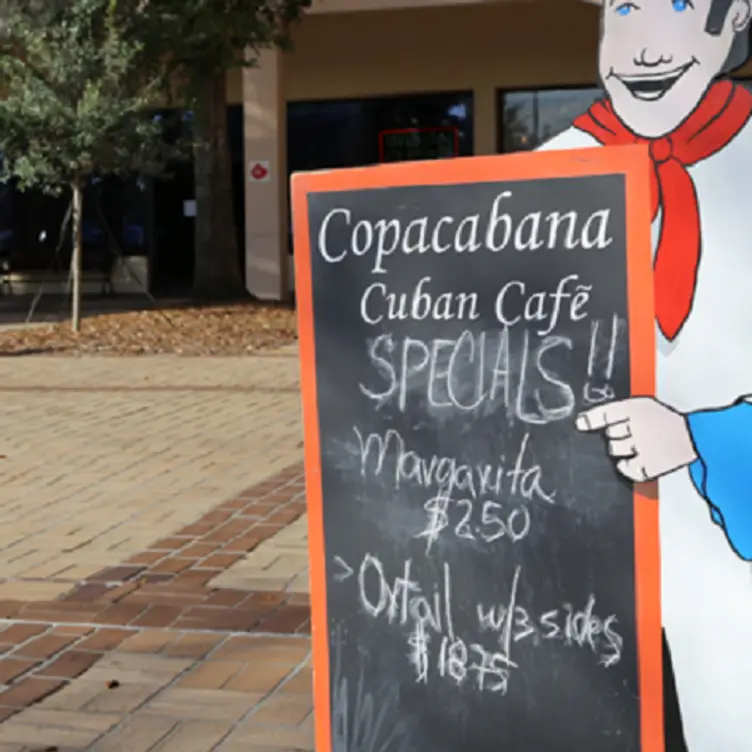 Copacabana
Cuban Cafẽ
SPECIALS!!
Margarita
$2.50
>Oxtail w/3 sides
$18.75